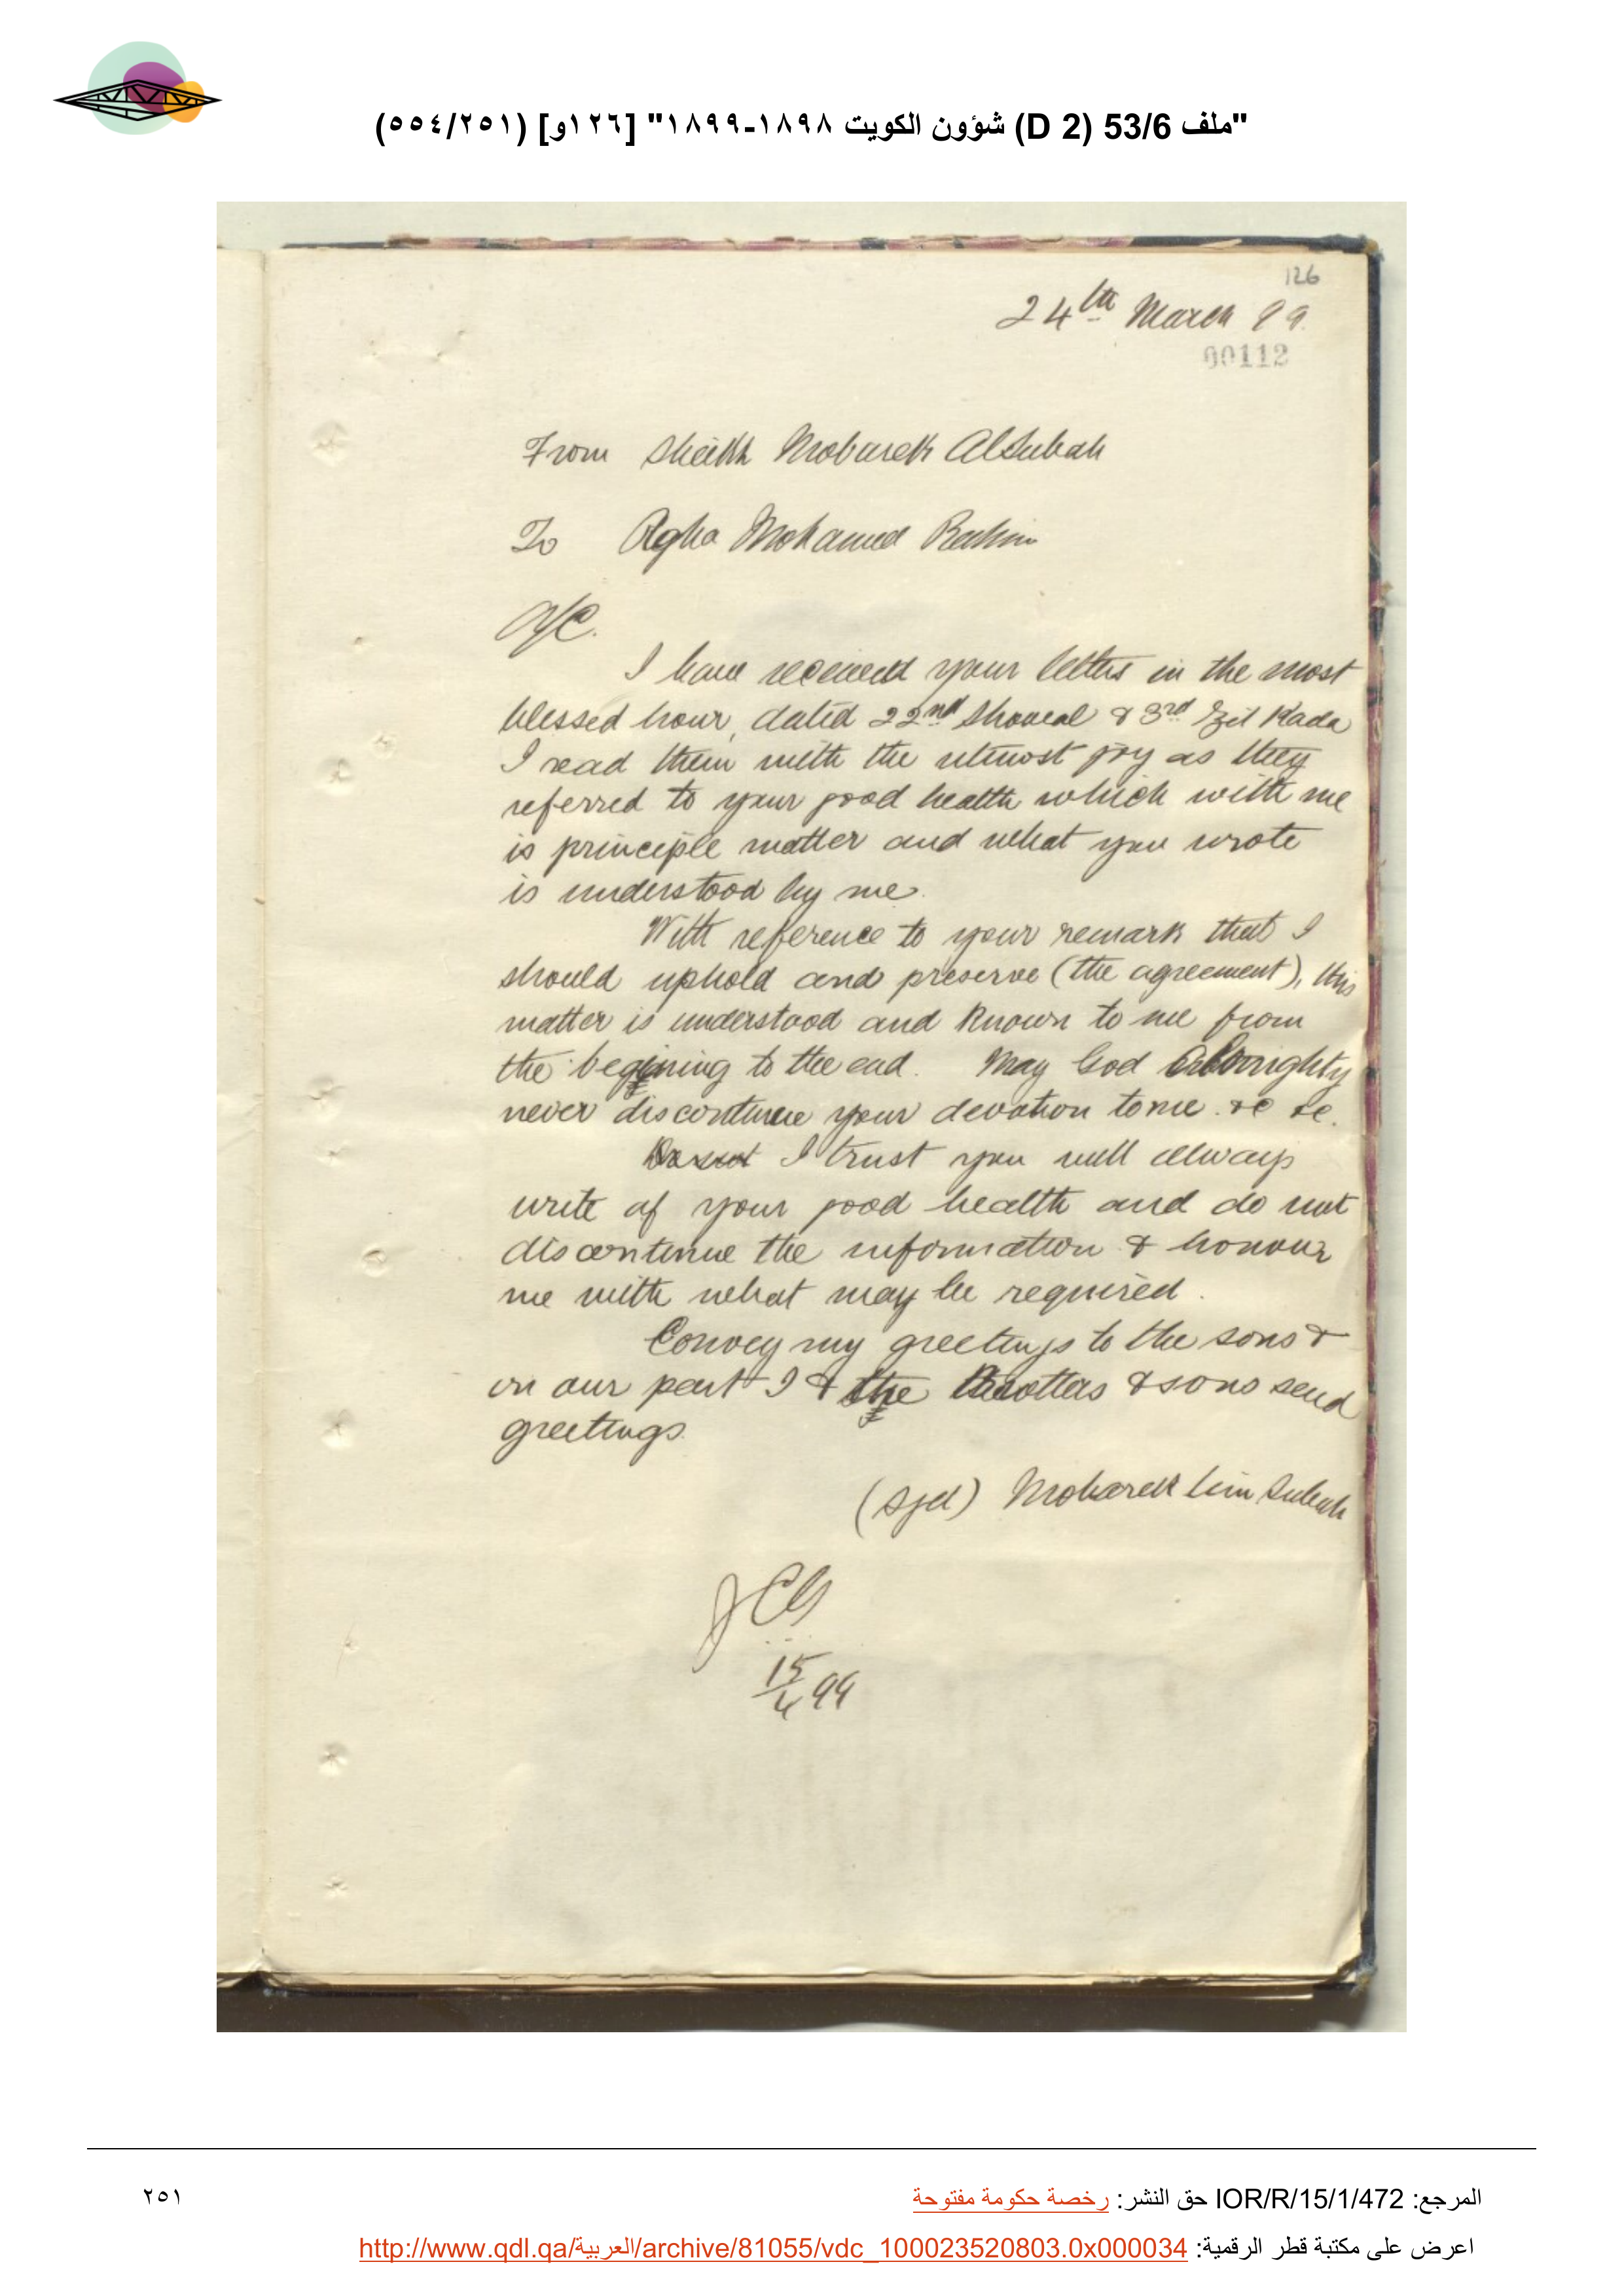 "ملف 53/6 (D 2) شؤون الكويت ١٨٩٨-١٨٩٩" [١٢٦و] (٥٥٤/٢٥١)
126
24th March 99.
00112
From Sheikh Mobarek AlSubah
To Agha Mohamed Rahim
A/C.
I have received your letters in the most
blessed hour, dated 22nd Showal & 3rd Zil Kada
I read them with the utmost joy as they
referred to your good health which with me
is principle matter and what you wrote
is understood by me.
With reference to your remark that I
should uphold and preserve (the agreement), this
matter is understood and known to me from
the begining to the end. May God Almighty
never discontinue your devotion to me &c &c.
I trust you will always
write of your good health and do not
discontinue the information & honour
me with what may be required.
Convey my greetings to the sons &
on our part I & the brothers & sons send
greetings.
(Sgd) Mobarek bin Subah
JCG
15/4 99
المرجع: IOR/R/15/1/472 حق النشر: رخصة حكومة مفتوحة
٢٥١
اعرض على مكتبة قطر الرقمية: http://www.qdl.qa/العربية/archive/81055/vdc_100023520803.0x000034